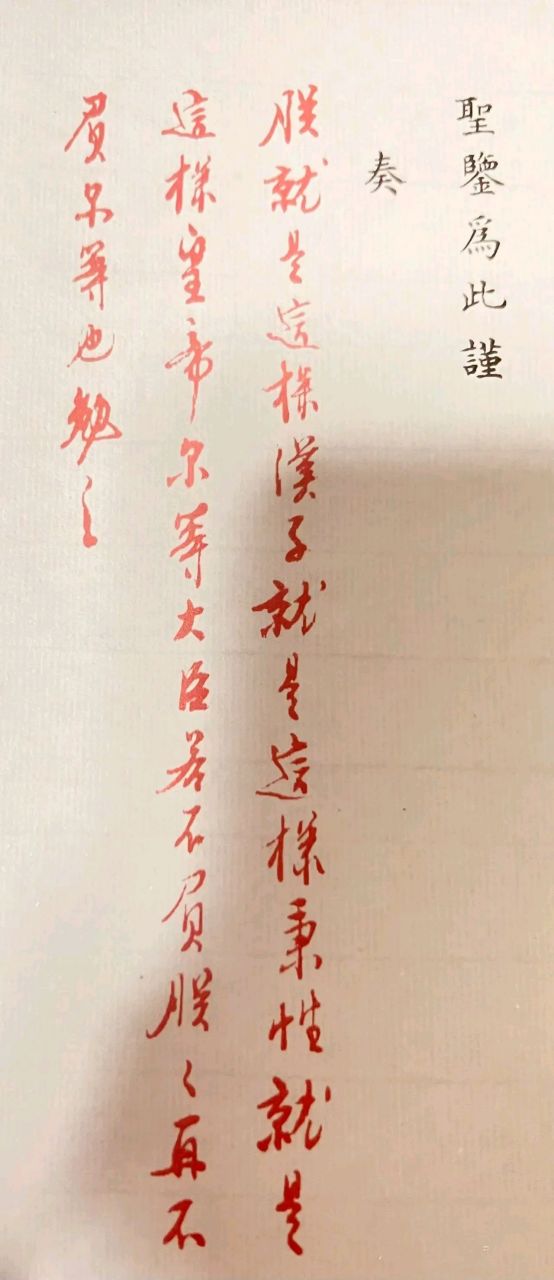 聖鑒爲此謹
奏
朕就是這樣漢子就是這樣秉性就是
這樣皇帝尔等大臣若不負朕〻再不
負尔等也勉之